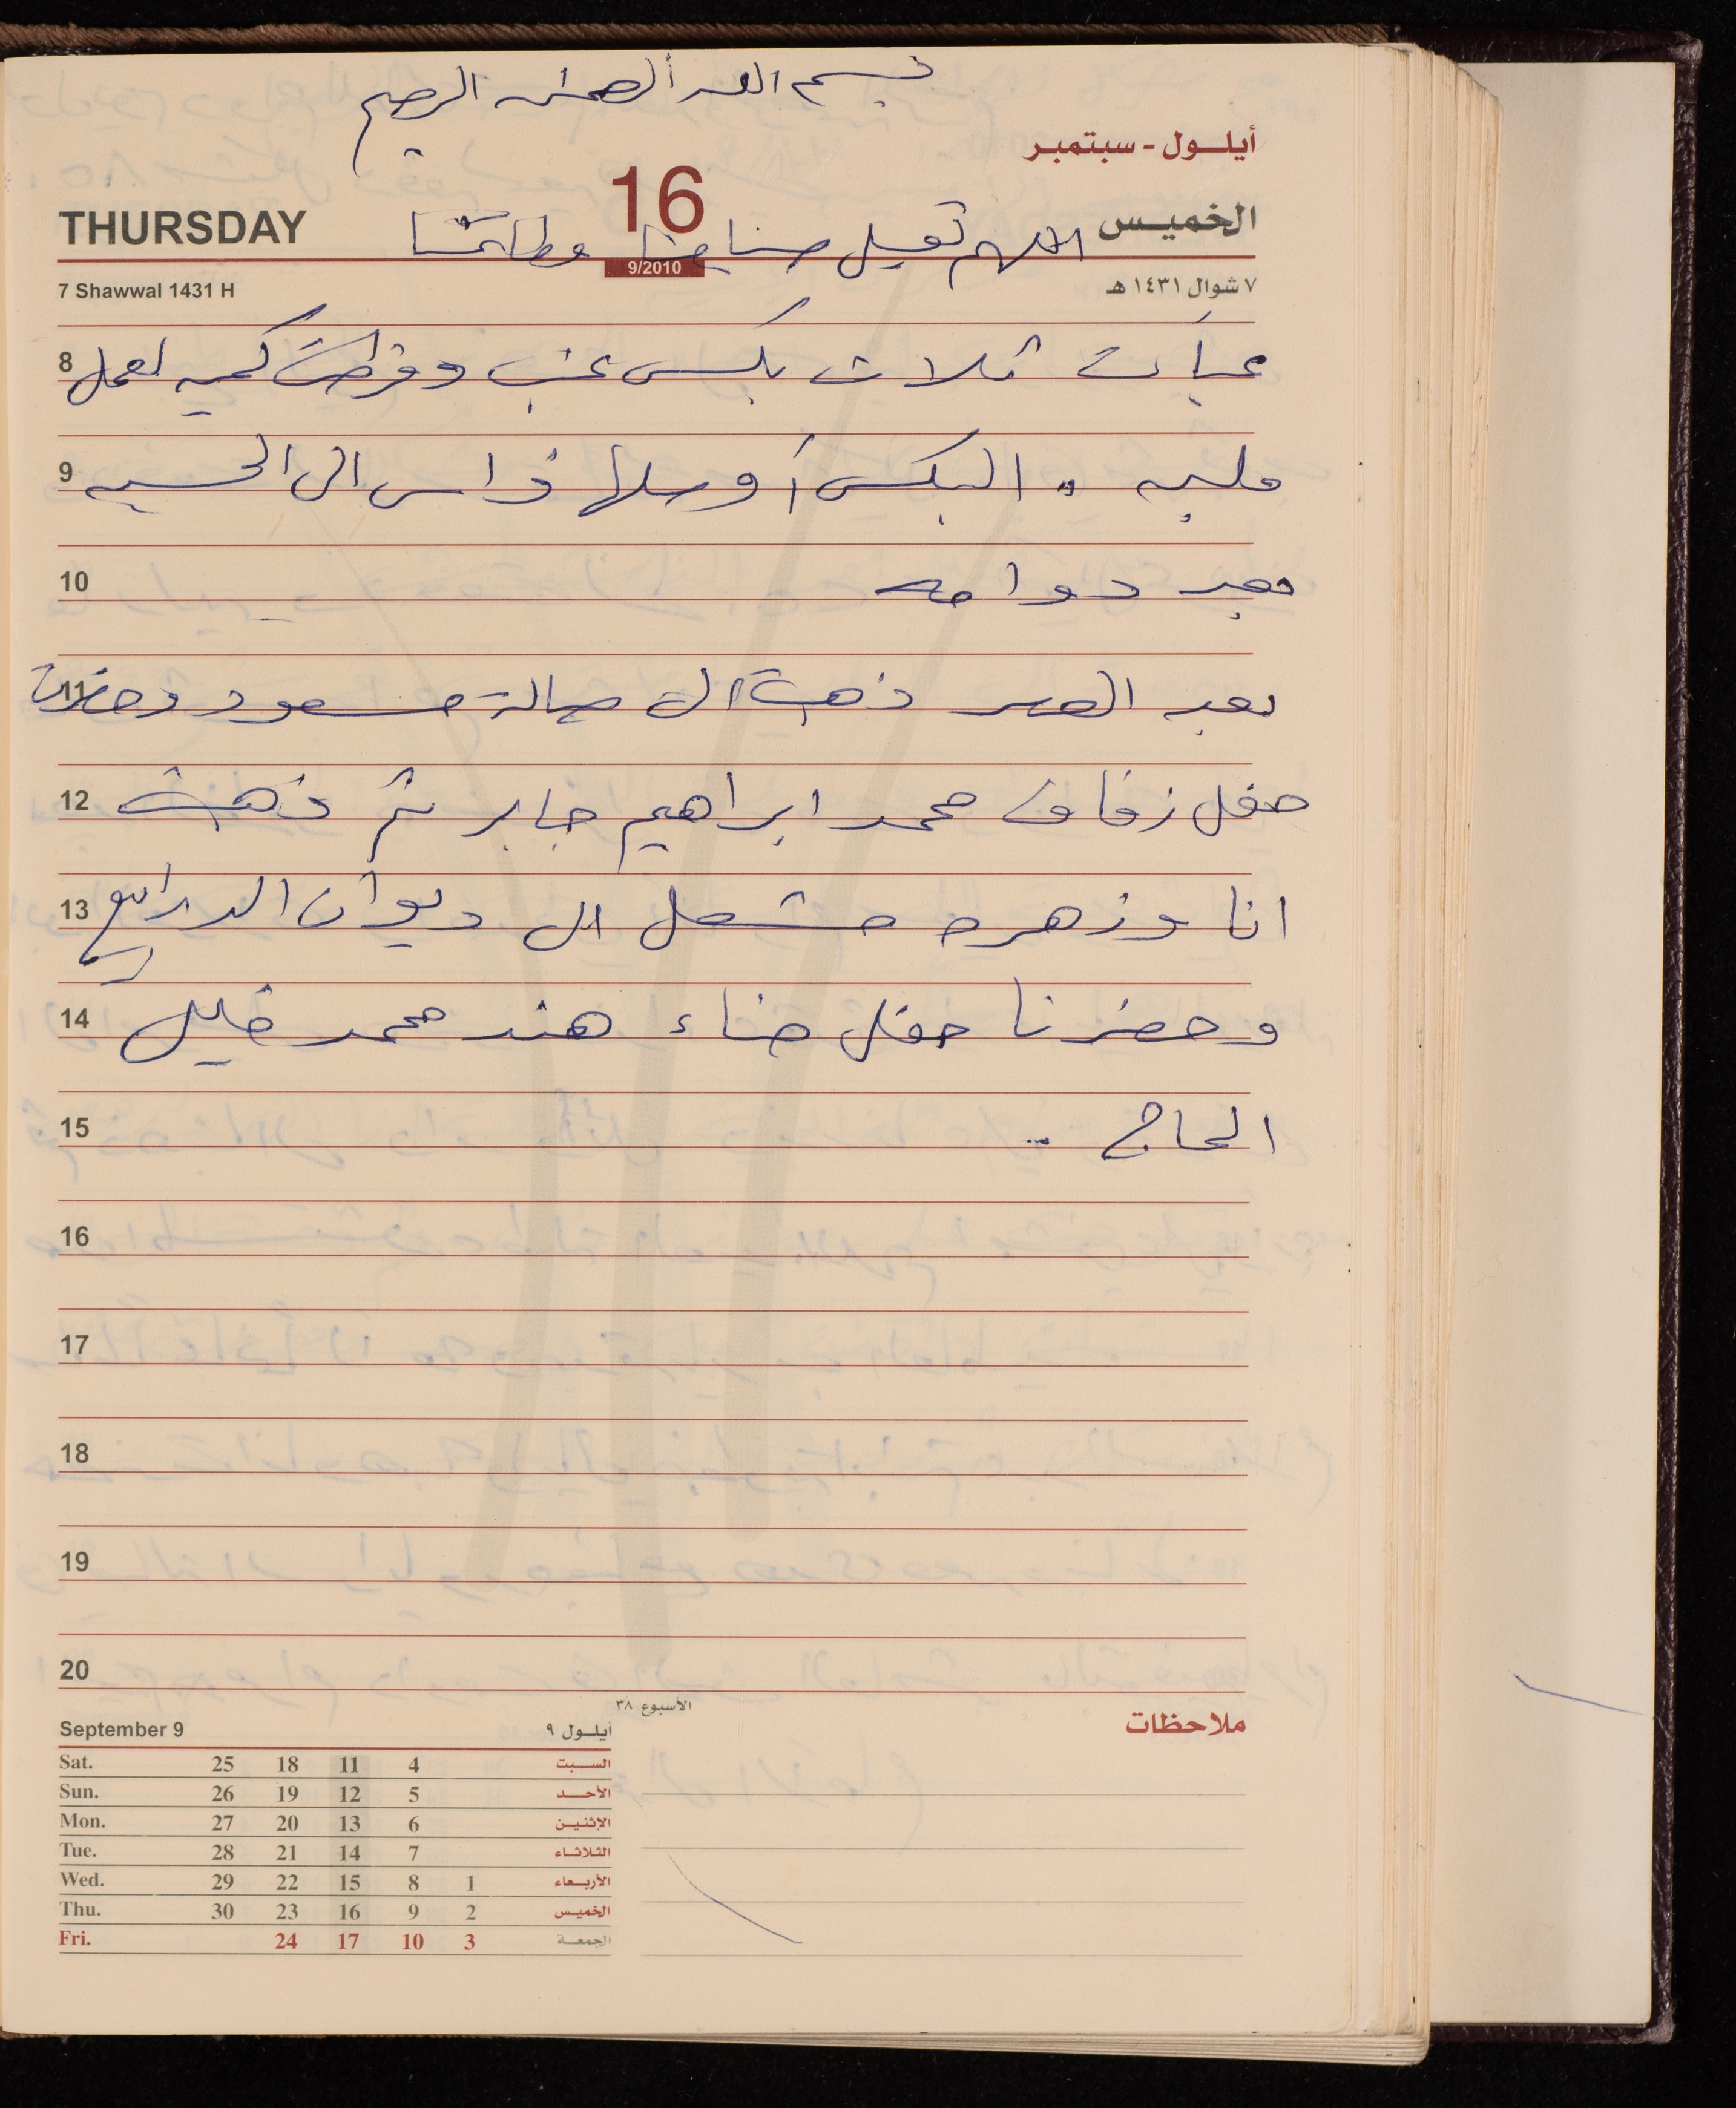 بسم الله الرحمن الرحيم
أيلول - سبتمبر
THURSDAY 16 الخميس
اللهم تقبل صيامنا وطاعتنا
9/2010
7 Shawwal 1431 H ٧ شوال ١٤٣١ هـ
8 عبأت ثلاث بكس عنب وفرطت كميه لعمل
9 ملبن .. البكس أوصلها فراس الى الحسبه
10 بعد دوامه
11 بعد العصر ذهبت الى صالة مسعود وحضرت
12 حفل زفاف محمد ابراهيم جابر ثم ذهبت
13 انا وزهره مشعل الى ديوان
14 وحضرنا حفل حناء هند محمد خليل
15 الحاج ..
16
17
18
19
20
الأسبوع ٣٨
ملاحظات
September 9 أيلول ٩
Sat. 25 18 11 4 السبت
Sun. 26 19 12 5 الأحد
Mon. 27 20 13 6 الإثنين
Tue. 28 21 14 7 الثلاثاء
Wed. 29 22 15 8 1 الأربعاء
Thu. 30 23 16 9 2 الخميس
Fri. 24 17 10 3 الجمعة